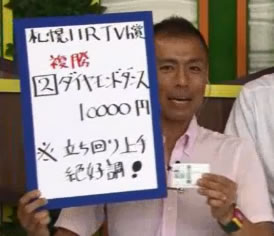 札幌11R TV賞
複勝
②ダイヤモンドダース
10000円
※立ち回り上手
絶好調!